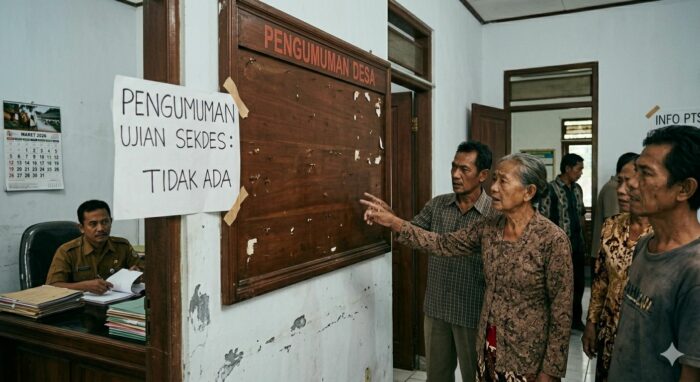 MARET 2026
PENGUMUMAN
UJIAN SEKDES :
TIDAK ADA
PENGUMUMAN DESA
INFO PTS